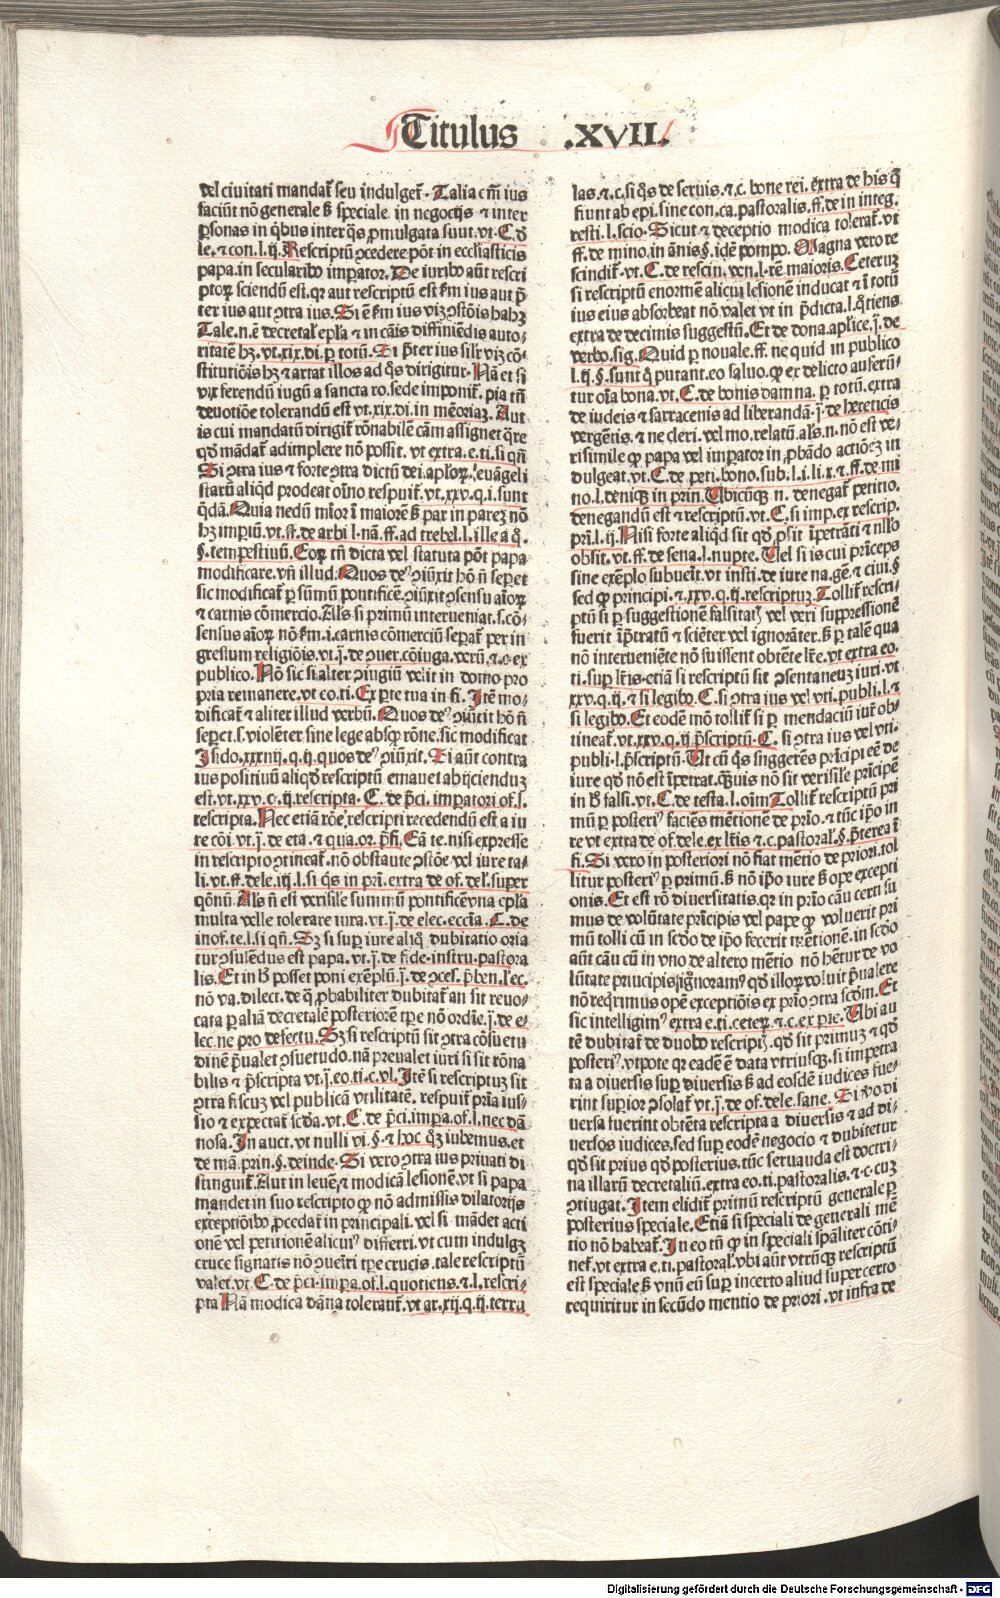 Titulus .XVII.
vel ciuitati mandat̄ seu indulget̄. Talia em̄ ius
faciūt nō generale s̄ speciale in negocijs ⁊ inter
ꝑsonas in q̄bus inter q̄s ꝓmulgata suut. vt. C. d̄
le. ⁊ con. l. ij. Rescriptū ꝯcedere pōt in eccl̄iasticis
papa. in secularibꝰ imꝑator. De iuribꝰ aūt rescri
ptoꝝ sciendū est. qꝛ aut rescriptū est ẜm ius aut p̄
ter ius aut ꝯtra ius. Si ē ẜm ius viꝫ ꝯstōis habꝫ
Tale. n. ē decretal̓ ep̄la ⁊ in cāis diffiniēdis auto/
ritatē hꝫ. vt. xix. di. ꝑ totū. Si p̄ter ius sil̓r viꝫ cō/
stitutiōis hꝫ ⁊ artat illos ad q̄s dirigitur. Nā et si
vix ferendū iugū a sancta ro. sede imponit̄. pia tn̄
deuotiōe tolerandū est vt. xix. di. in memoriaꝫ. Aut
is cui mandatū dirigit̄ rōnabilē cām assignet q̄re
qd̄ mādat̄ adimplere nō possit. vt extra. e. ti. si qn̄
Si ꝯtra ius ⁊ forte ꝯtra dictū dei. aploꝝ. euāgeli
starū aliqd̄ prodeat oīno respuit̄. vt. xxv. q. i. sunt
q̄dā. Quia nedū mīor ī maiorē s̄ par in pareꝫ nō
hꝫ impiū. vt. ff. de arbi l. nā. ff. ad trebel. l. ille a q̄.
§. tempestiuū. Eoꝝ tn̄ dicta vel statuta pōt papa
modificare. vn̄ illud. Quos deꝰ ꝯiūxit hō n̄ seꝑet
sic modificat̄ ꝑ sūmū pontificē. ꝯiūxit ꝯsensu aīoꝝ
⁊ carnis cōmercio. Als̄ si primū interueniat. s. cō/
sensus aīoꝝ nō ẜm. i. carnis cōmerciū seꝑat̄ per in
gressum religiōis. vt. j. de ꝯuer. cōiuga. verū. ⁊. c. ex
publico. Nō sic si alter ꝯiugiū velit in domo pro
pria remanere. vt eo. ti. Ex ꝑte tua in fi. Itē mo/
dificat̄ ⁊ aliter illud verbū. Quos deꝰ ꝯiūxit hō n̄
seꝑet. s. violēter sine lege absqꝫ rōne. sic modificat
Isido. xxxiij. q. ij. quos deꝰ ꝯiūxit. Si aūt contra
ius positiuū aliqd̄ rescriptū emauet abijcienduꝫ
est. vt. xxv. q. ij. rescripta. C. de p̄ci. imꝑatori of. l.
rescripta. Nec etiā rōe rescripti recedendū est a iu
re cōi. vt. j. de eta. ⁊ qua. or. p̄fi. Eā te. nisi expresse
in rescripto ꝯtineat̄. nō obstaute ꝯstiōe vel iure ta/
li. vt. ff. dele. iij. l. si q̄s in pri. extra de of. del̓. super
qōnū. Als̄ n̄ est verisile summū pontificē vna ep̄la
multa velle tolerare iura. vt. j. de elec. eccīa. C. de
inof. te. l. si qn̄. Sꝫ si suꝑ iure aliq̄ dubitatio oria
tur ꝯsulēdus est papa. vt. j. de fide. instru. pastora
lis. Et in s̄ posset poni exēplū. j. de ꝯces. p̄ben. l̓ ec.
nō va. dilect. de q̄ ꝓbabiliter dubitat̄ an sit reuo/
cata ꝑ aliā decretalē posteriorē tꝑe nō ordīe. j. de e/
lec. ne pro defectu. Sꝫ si rescriptū sit ꝯtra cōsuetu
dinē p̄ualet ꝯsuetudo. nā preualet iuri si sit rōna
bilis ⁊ p̄scripta vt. j. eo. ti. c. vl. Itē si rescriptuꝫ sit
ꝯtra fiscuꝫ vel publicā vtilitatē. respuit̄ pria ius/
sio ⁊ expectat̄ scd̄a. vt. C. de p̄ci. impa. of. l. nec dā
nosa. In auct. vt nulli vi. §. ⁊ hoc q̄ꝫ iubemus. et
de mā. prin. §. deinde. Si vero ꝯtra ius priuati di
stinguit̄. Aut in leuē ⁊ modicā lesionē. vt si papa
mandet in suo rescripto ꝙ nō admissis dilatorijs
exceptiōibꝰ ꝓcedat̄ in principali. vel si. mādet acti
onē vel petitionē alicuiꝰ differri. vt cum indulgꝫ
cruce signatis nō ꝯueīri tꝑe crucis. tale rescriptū
valet. vt. C. de p̄ci. impa. of. l. quotiens. ⁊. l. rescri/
pta Nā modica dāna tolerant̄. vt ar. xij. q. ij. terru
las. ⁊. c. si q̄s de seruis. ⁊. c. bone rei. extra de his q̄
fiunt ab epi. sine con. ca. pastoralis. ff. de in integ.
resti. l. scio. Sicut ⁊ deceptio modica tolerat̄. vt
ff. de mino. in ānis §. idē pompo. Magna vero re
scindit̄. vt. C. de rescin. ven. l. rē maioris. Ceteruꝫ
si rescriptū enormē alicui lesionē inducat ⁊ ī totū
ius eius absorbeat nō valet vt in p̄dicta. l. q̄tiens
extra de decimis suggestū. Et de dona. aplice. j. de
verbo. sig. Quid ꝑ nouale. ff. ne quid in publico
l. ij. §. sunt q̄ putant. eo saluo. ꝙ ex delicto auferū/
tur oīa bona. vt. C. de bonis damna. ꝑ totū. extra
de iudeis ⁊ sarracenis ad liberandā. j. de hereticis
vergētis. ⁊ ne cleri. vel mo. relatū. als̄. n. nō est ve/
risimile ꝙ papa vel imꝑator in ꝓbādo actiōeꝫ in
dulgeat. vt. C. de peti. bono. sub. l. i. li. x. ⁊. ff. de. mi
no. l. deniqꝫ in prin. Vbicūqꝫ n. denegat̄ petitio.
denegandū est ⁊ rescriptū. vt. C. si imp. ex rescrip.
pri. l. ij. Nisi forte aliqd̄ sit qd̄ ꝓsit īpetrāti ⁊ nll̓o
obsit. vt. ff. de sena. l. nupte. Uel si is cui prīceps
sine exēplo subueīt. vt insti. de iure na. gē. ⁊ ciui. §
sed ꝙ principi. ⁊. xxv. q. ij. rescriptuꝫ. Tollit̄ rescri/
ptū si ꝑ suggestionē falsitatꝭ vel veri suppressionē
fuerit īp̄tratū ⁊ sciēter vel ignorāter. s̄ ꝑ talē qua
nō interueniēte nō fuissent obtēte lr̄e. vt extra eo.
ti. suꝑ lr̄is. etiā si rescriptū sit ꝯsentaneuꝫ iuri. vt
xxv. q. ij. ⁊ si legibꝰ. C. si ꝯtra ius vel vti. publi. l. ⁊
si legibꝰ. Et eodē mō tollit̄ si ꝑ mendaciū iut̄ ob/
tineat̄. vt. xxv. q. ij p̄scriptū. C. si ꝯtra ius vel vti.
publi. l. p̄scriptū. Ut cū q̄s suggerēs prīcipi eē de
iure qd̄ nō est īpetrat. q̄uis nō sit verisile prīcipē
in s̄ falsi. vt. C. de testa. l. oīm Tollit̄ rescriptū pri
mū ꝑ posteriꝰ faciēs mētionē de prīo. ⁊ tūc ip̄o in
re vt extra de of. dele. ex lr̄is ⁊. c. pastoral̓. §. p̄terea ī
fi. Si vero in posteriori nō fiat mētio de priori. tol
litur posteriꝰ ꝑ primū. s̄ nō ip̄o iure s̄ ope excepti
onis. Et est rō diuersitatis. qꝛ in prīo cāu certi su
mus de volūtate prīcipis vel pape ꝙ voluerit pri
mū tolli cū in scd̄o de ip̄o fecerit mētionē. in scd̄o
aūt cāu cū in vno de altero mētio nō hētur de vo
lūtate priucipis ignoramꝰ qd̄ illoꝝ voluit p̄ualere
nō reqrimus opē exceptiōis ex prīo ꝯtra scd̄m. Et
sic intelligimꝰ extra e. ti. ceteꝝ. ⁊. c. ex ꝑte. Ubi au
tē dubitat̄ de duobꝰ rescriptꝭ. qd̄ sit primuꝫ ⁊ qd̄
posteriꝰ. vtpote qꝛ eadē ē data vtriusqꝫ. si impetra
ta a diuersis suꝑ diuersis s̄ ad eosdē iudices fue/
rint suꝑior ꝯsolat̄ vt. j. de of. dele. sane. Si vo di
uersa fuerint obtēta rescripta a diuersis ⁊ ad di/
uersos iudices. sed sup eodē negocio ⁊ dubitetur
qd̄ sit prius qd̄ posterius. tūc seruauda est doctri/
na illarū decretaliū. extra eo. ti. pastoralis. ⁊. c. cuꝫ
ꝯtiugat. Item elidit̄ primū rescriptū generale ꝑ
posterius speciale. Etiā si speciali de generali mē
tio nō habeat̄. In eo tn̄ ꝙ in speciali spāliter cōti/
net̄. vt extra e. ti. pastoral̓. vbi aūt vtrūqꝫ rescriptū
est speciale s̄ vnū eū sup incerto aliud super certo
requiritur in secūdo mentio de priori. vt infra de
Digitalisierung gefördert durch die Deutsche Forschungsgemeinschaft - DFG